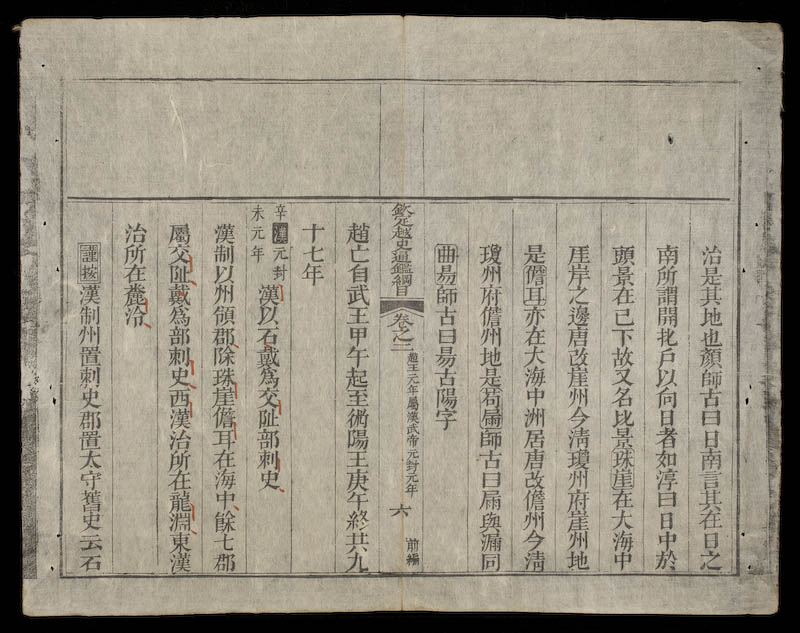 治是其地也顔師古曰日南言其在日之
南所謂開北戸以向日者如淳曰日中於
頭景在已下故又名比景珠崖在大海中
厓岸之邊唐改崖州今淸瓊州府崖州地
是儋耳亦在大海中洲居唐改儋州今淸
瓊州府儋州地是苟扇師古曰扇與漏同
曲昜師古曰昜古陽字
欽定越史通鑑綱目 卷之二 趙王元年屬漢武帝元封元年 六 前編
趙亡自武王甲午起至術陽王庚午終共九
十七年
辛未 漢元封元年 漢以石戴爲交阯部刺史
漢制以州領郡除珠崖儋耳在海中餘七郡
屬交阯戴爲部刺史西漢治所在龍淵東漢
治所在麊泠
謹按漢制州置刺史郡置太守舊史云石